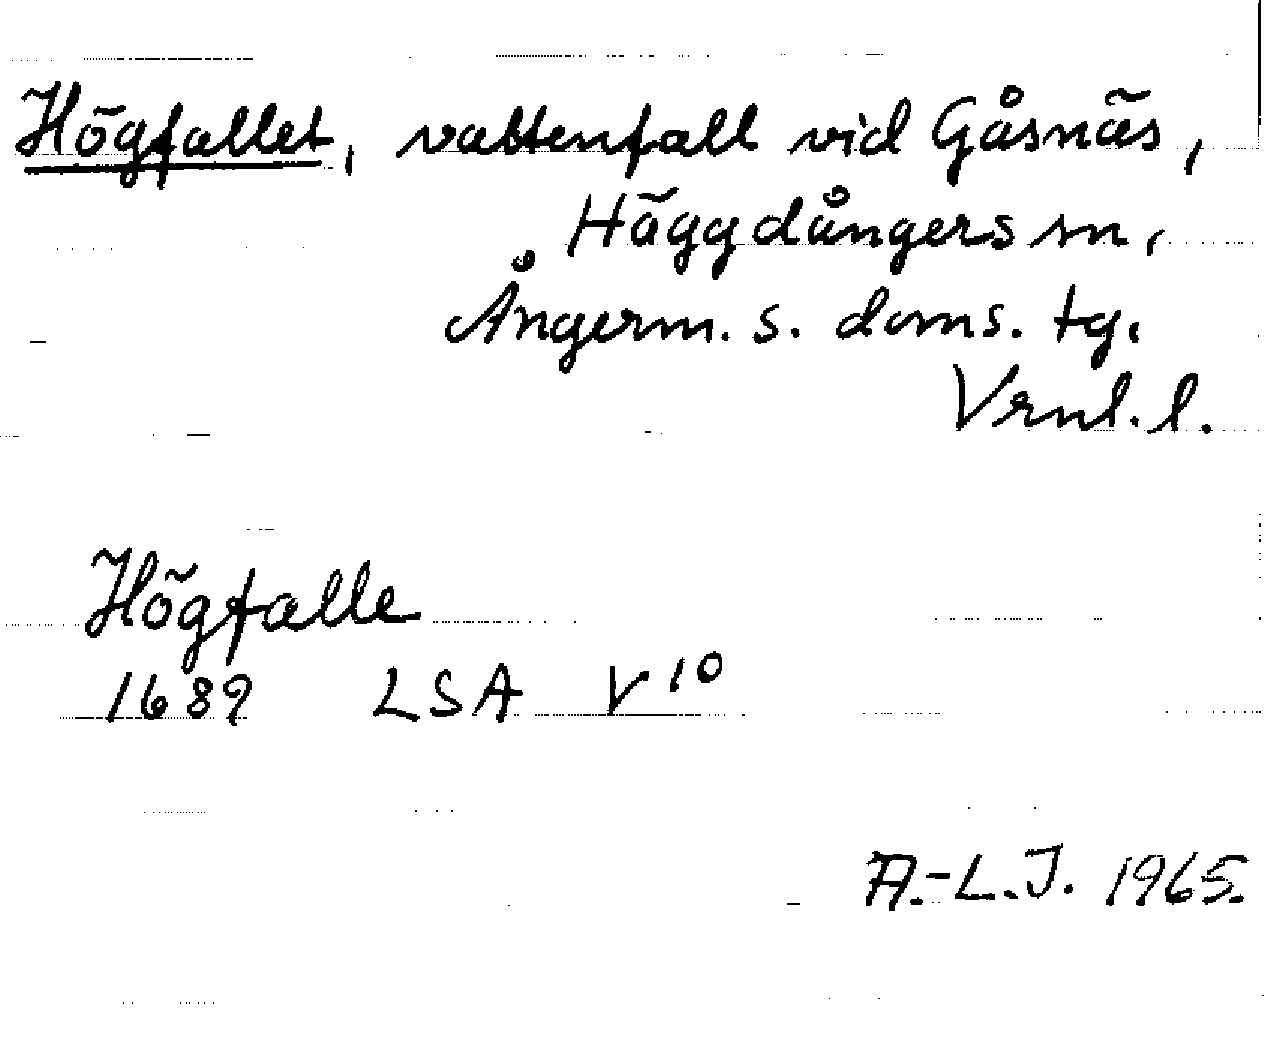 Högfallet, vattenfall vid Gåsnäs,
Häggdångers sn,
Ångerm. s. doms. tg.
Vrnl. l.
Högfalle
1689 LSA V 10
A.-L.J. 1965.